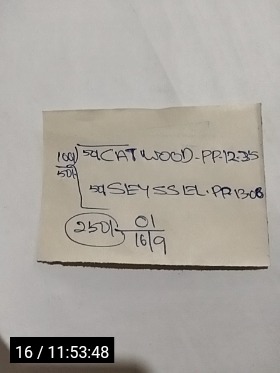 100/ 50/CATWOOD-PP.12:35
50/-
50/SEYSSEL.PP.13:08
250/- 01
16/9
16 / 11:53:48